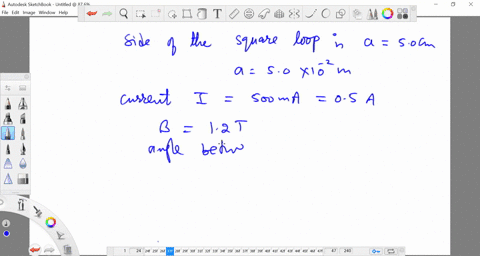 Autodesk SketchBook - Untitled @ 87.6%
File Edit Image Window Help
side of the square loop is a = 5.0 cm
a = 5.0 ×10⁻² m
current I = 500 mA = 0.5 A
B = 1.2 T
angle betw